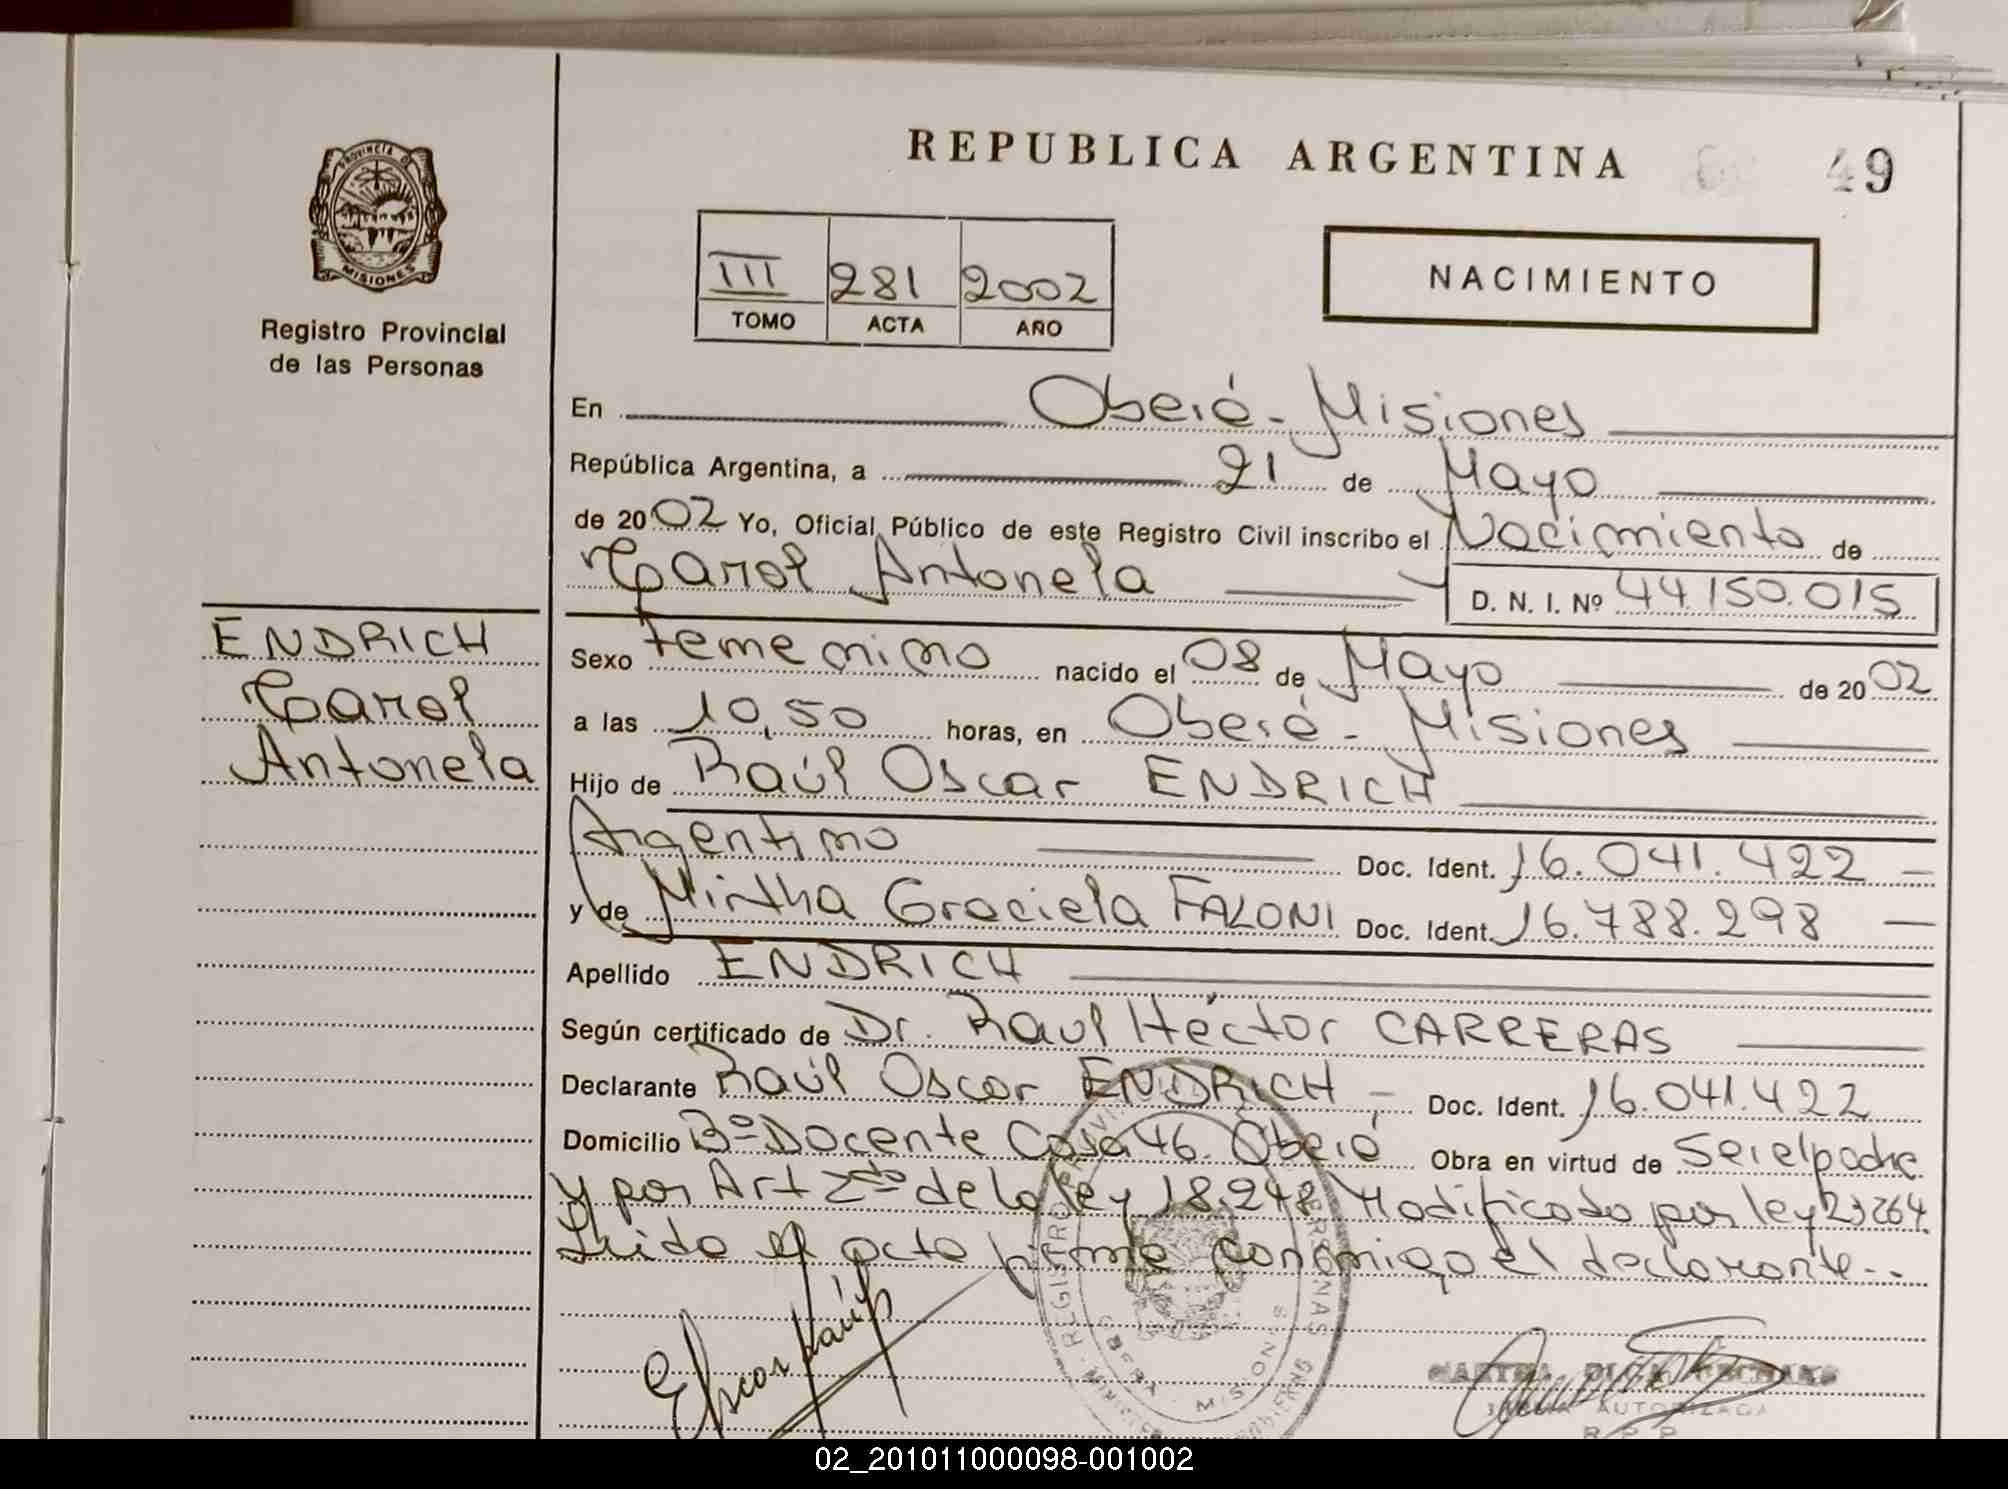 REPUBLICA ARGENTINA 49
PROVINCIA D
MISIONES
Registro Provincial
de las Personas
III 281 2002
TOMO ACTA AÑO
NACIMIENTO
En Oberá - Misiones
República Argentina, a 21 de Mayo
de 2002 Yo, Oficial Público de este Registro Civil inscribo el Nacimiento de
Carol Antonela
D. N. I. Nº 44.150.015
ENDRICH
Carol
Antonela
Sexo femenino nacido el 08 de Mayo de 2002
a las 10,50 horas, en Oberá - Misiones
Hijo de Raúl Oscar ENDRICH
Argentino Doc. Ident. 16.041.422
y de Mirtha Graciela FALONI Doc. Ident. 16.788.298
Apellido ENDRICH
Según certificado de Dr. Raul Héctor CARRERAS
Declarante Raúl Oscar ENDRICH - Doc. Ident. 16.041.422
Domicilio Bº Docente Casa 46. Oberá Obra en virtud de Ser el padre
y por Art 2do de la ley 18.248 Modificado por ley 23264.
Leido el acta firma conmigo el declarante..
REGISTRO PROVI PERSONAS
OBERA - MISIONES
AUTORIZADA
02_201011000098-001002